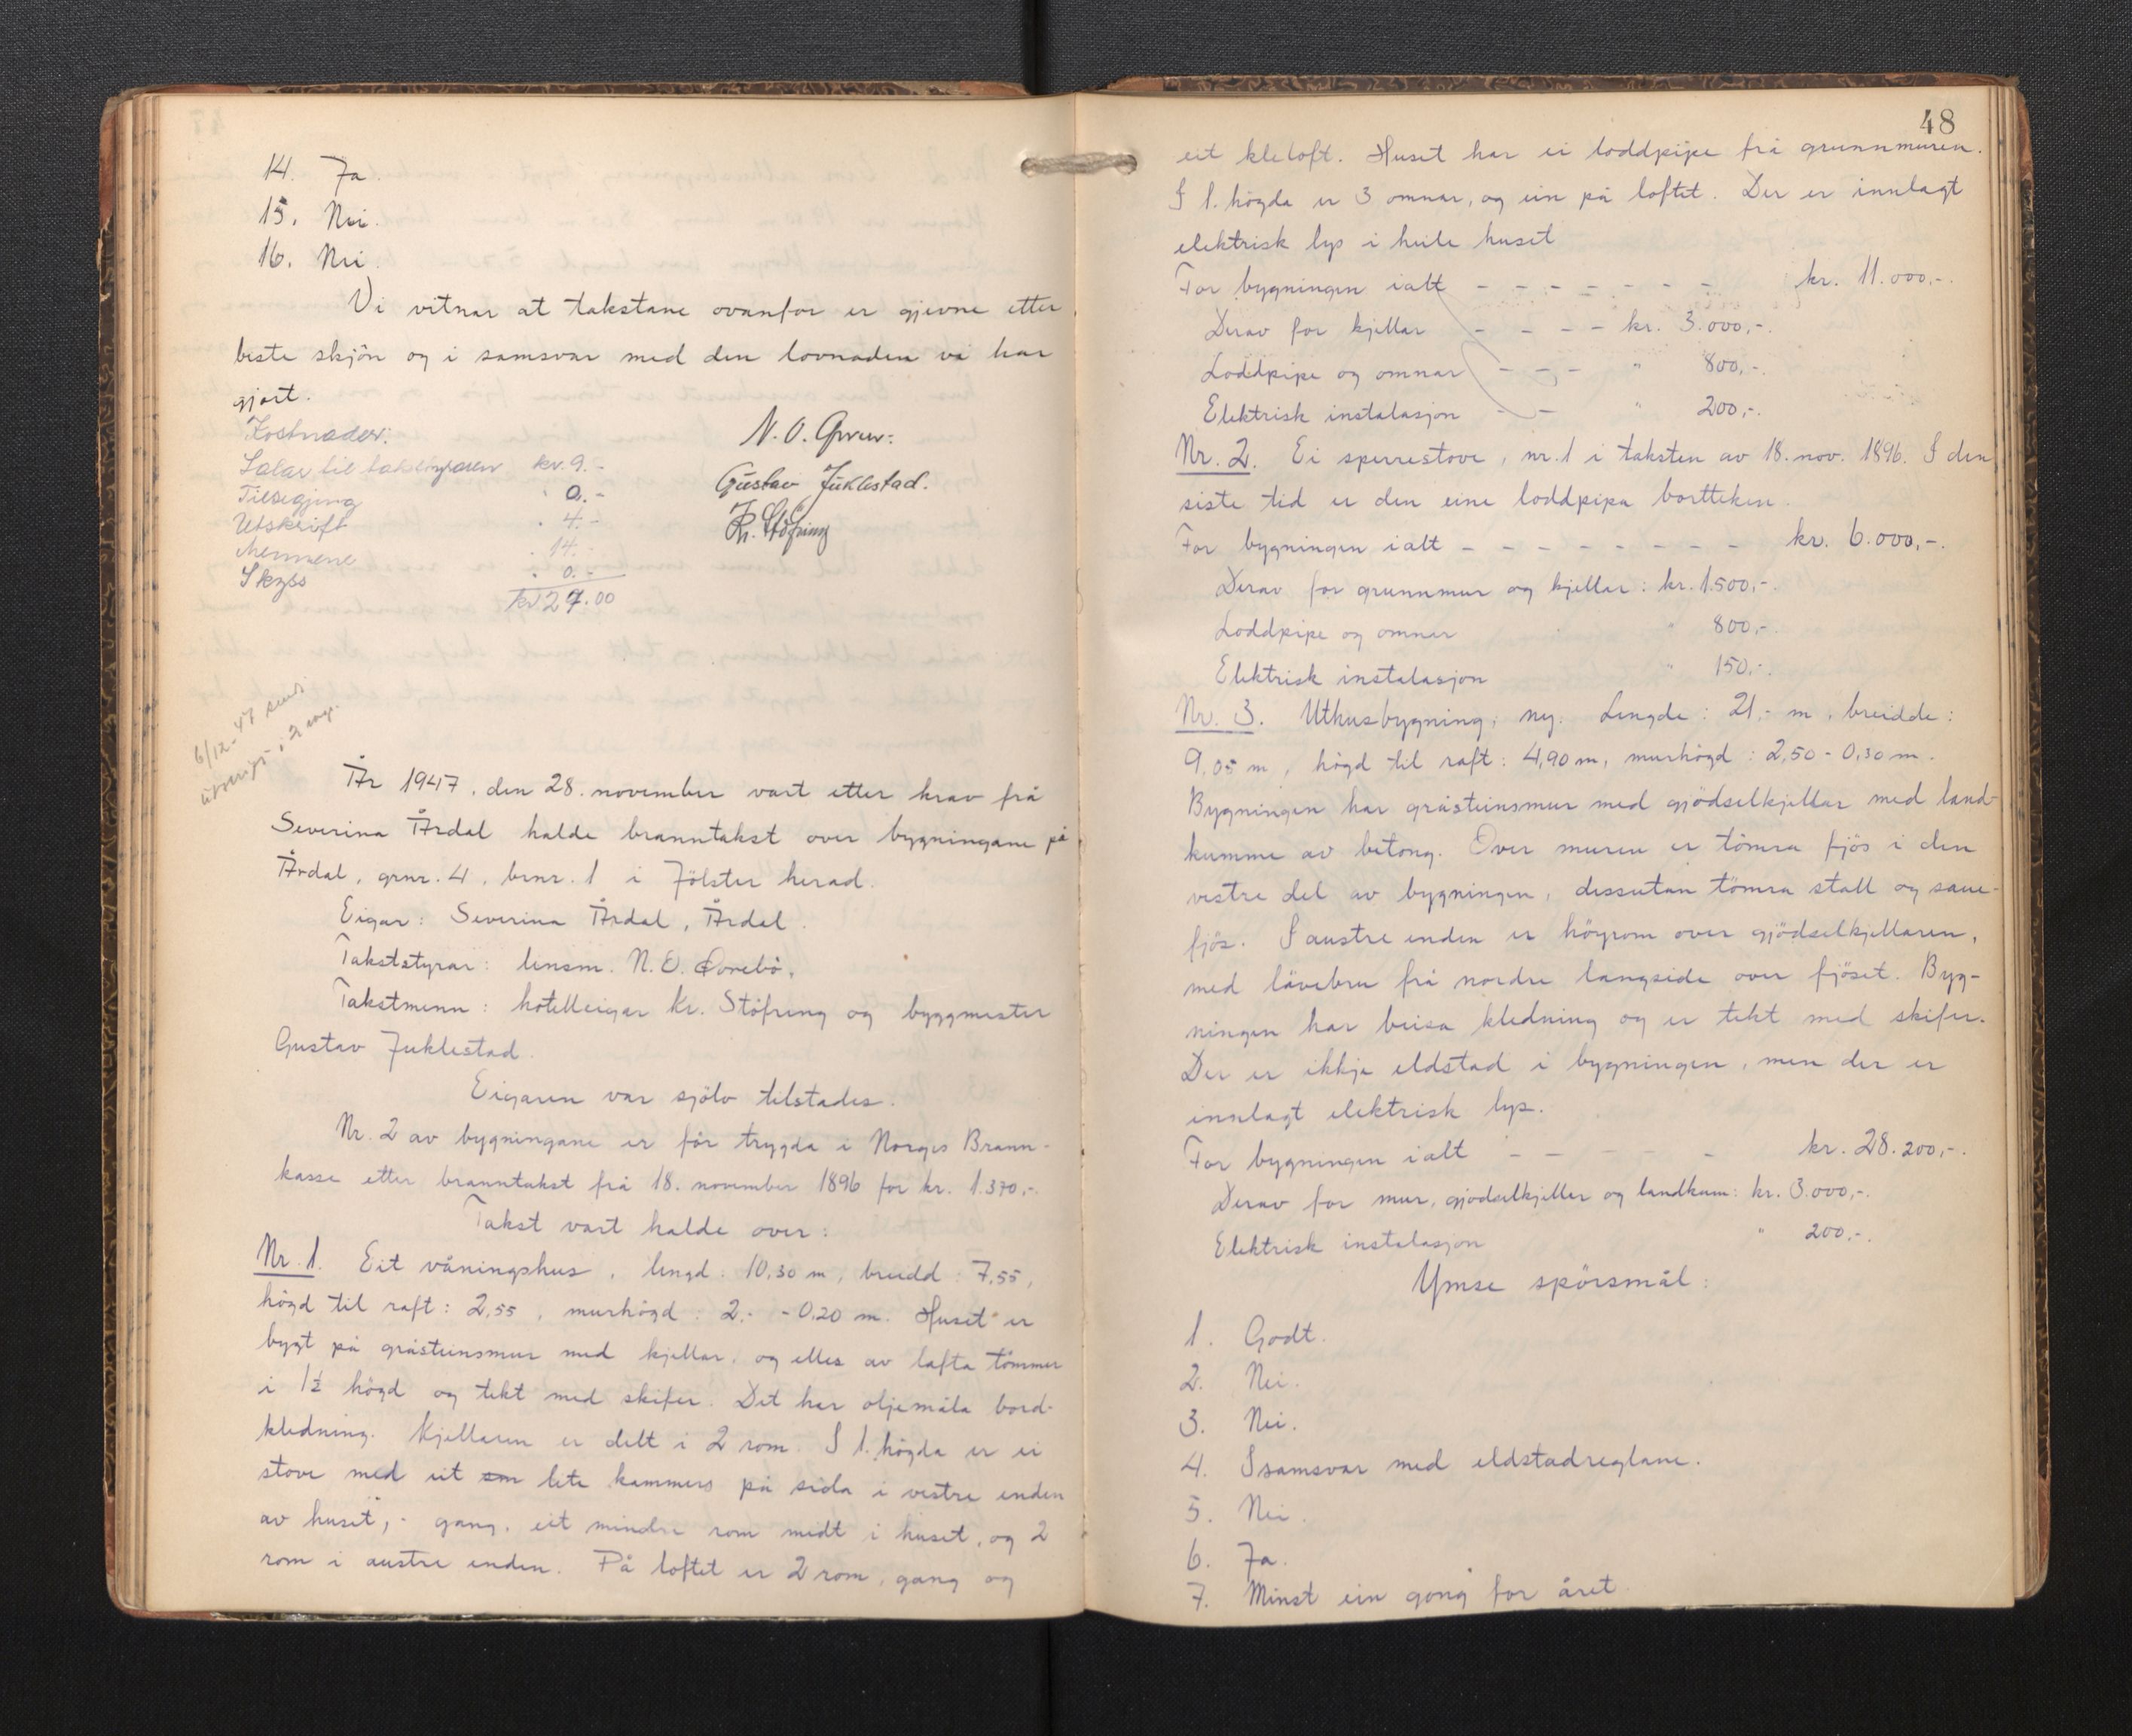 14. Ja.
15. Nei.
16. Nei.
Vi vitnar at takstane ovanfor er gjevne etter
beste skjön og i samsvar med den lovnaden vi har
gjort.
Kostnader:
Salar til takstyraren kr. 9.-
Tilseigjing " 0.-
Utskrift " 4.-
Mennene " 14.-
Skyss " 0.-
kr 27.00
N. O.
Gustav Juklestad.
Kr. Stöfring
6/12-47 send
utskrift i 2
År 1947, den 28. november vart etter krav frå
Severina Årdal halde branntakst over bygningane på
Årdal, grnr. 4, brnr. 1 i Jölster herad.
Eigar: Severina Årdal, Årdal.
Takststyrar: lensm. N. O. Orrebö.
Takstmenn: hotelleigar Kr. Stöfring og byggmester
Gustav Juklestad.
Eigaren var sjölv tilstades.
Nr. 2 av bygningane er för trygda i Norges Brann-
kasse etter branntakst frå 18. november 1896 for kr. 1.370,-.
Takst vart halde over:
Nr. 1. Eit våningshus, lengd: 10,30 m, breidd: 7,55,
högd til raft: 2,55, murhögd: 2,- - 0,20 m. Huset er
bygt på gråsteinsmur med kjellar, og elles av lafta tömmer
i 1½ högd og tekt med skifer. Det har oljemåla bord-
kledning. Kjellaren er delt i 2 rom. I 1. högda er ei
stove med eit som lete kammers på sida i vestre enden
av huset,- gang, eit mindre rom midt i huset, og 2
rom i austre enden. På loftet er 2 rom, gang og
48
eit kleloft. Huset har ei loddpipe frå grunnmuren.
I 1. högda er 3 omnar, og ein på loftet. Der er innlagt
elektrisk lys i heile huset
For bygningen ialt - - - - - - - kr. 11.000,-.
Derav for kjellar - - - - kr. 3.000,-.
Loddpipe og omnar - - - " 800,-.
Elektrisk instalasjon - - " 200,-.
Nr. 2. Ei sperrestove, nr. 1 i taksten av 18. nov. 1896. I den
siste tid er den eine loddpipa bortteken.
For bygningen ialt - - - - - - - - kr. 6.000,-.
Derav for grunnmur og kjellar: kr. 1.500,-.
Loddpipe og omner " 800,-.
Elektrisk instalasjon " 150,-.
Nr. 3. Uthusbygning, ny. Lengde: 21,- m, breidde:
9,05 m, högd til raft: 4,90 m, murhögd: 2,50 - 0,30 m.
Bygningen har gråsteinsmur med gjödselkjellar med land-
kumme av betong. Over muren er tömra fjös i den
vestre del av bygningen, dessutan tömra stall og saue-
fjös. I austre enden er höyrom over gjödselkjellaren,
med låvebru frå nordre langside over fjöset. Byg-
ningen har beisa kledning og er tekt med skifer.
Der er ikkje eldstad i bygningen, men der er
innlagt elektrisk lys.
For bygningen ialt - - - - - kr. 28.200,-.
Derav for mur, gjödselkjeller og landkum: kr. 3.000,-.
Elektrisk instalasjon " 200,-.
Ymse spörsmål:
1. Godt.
2. Nei.
3. Nei.
4. I samsvar med eldstadreglane.
5. Nei.
6. Ja.
7. Minst ein gong for året.